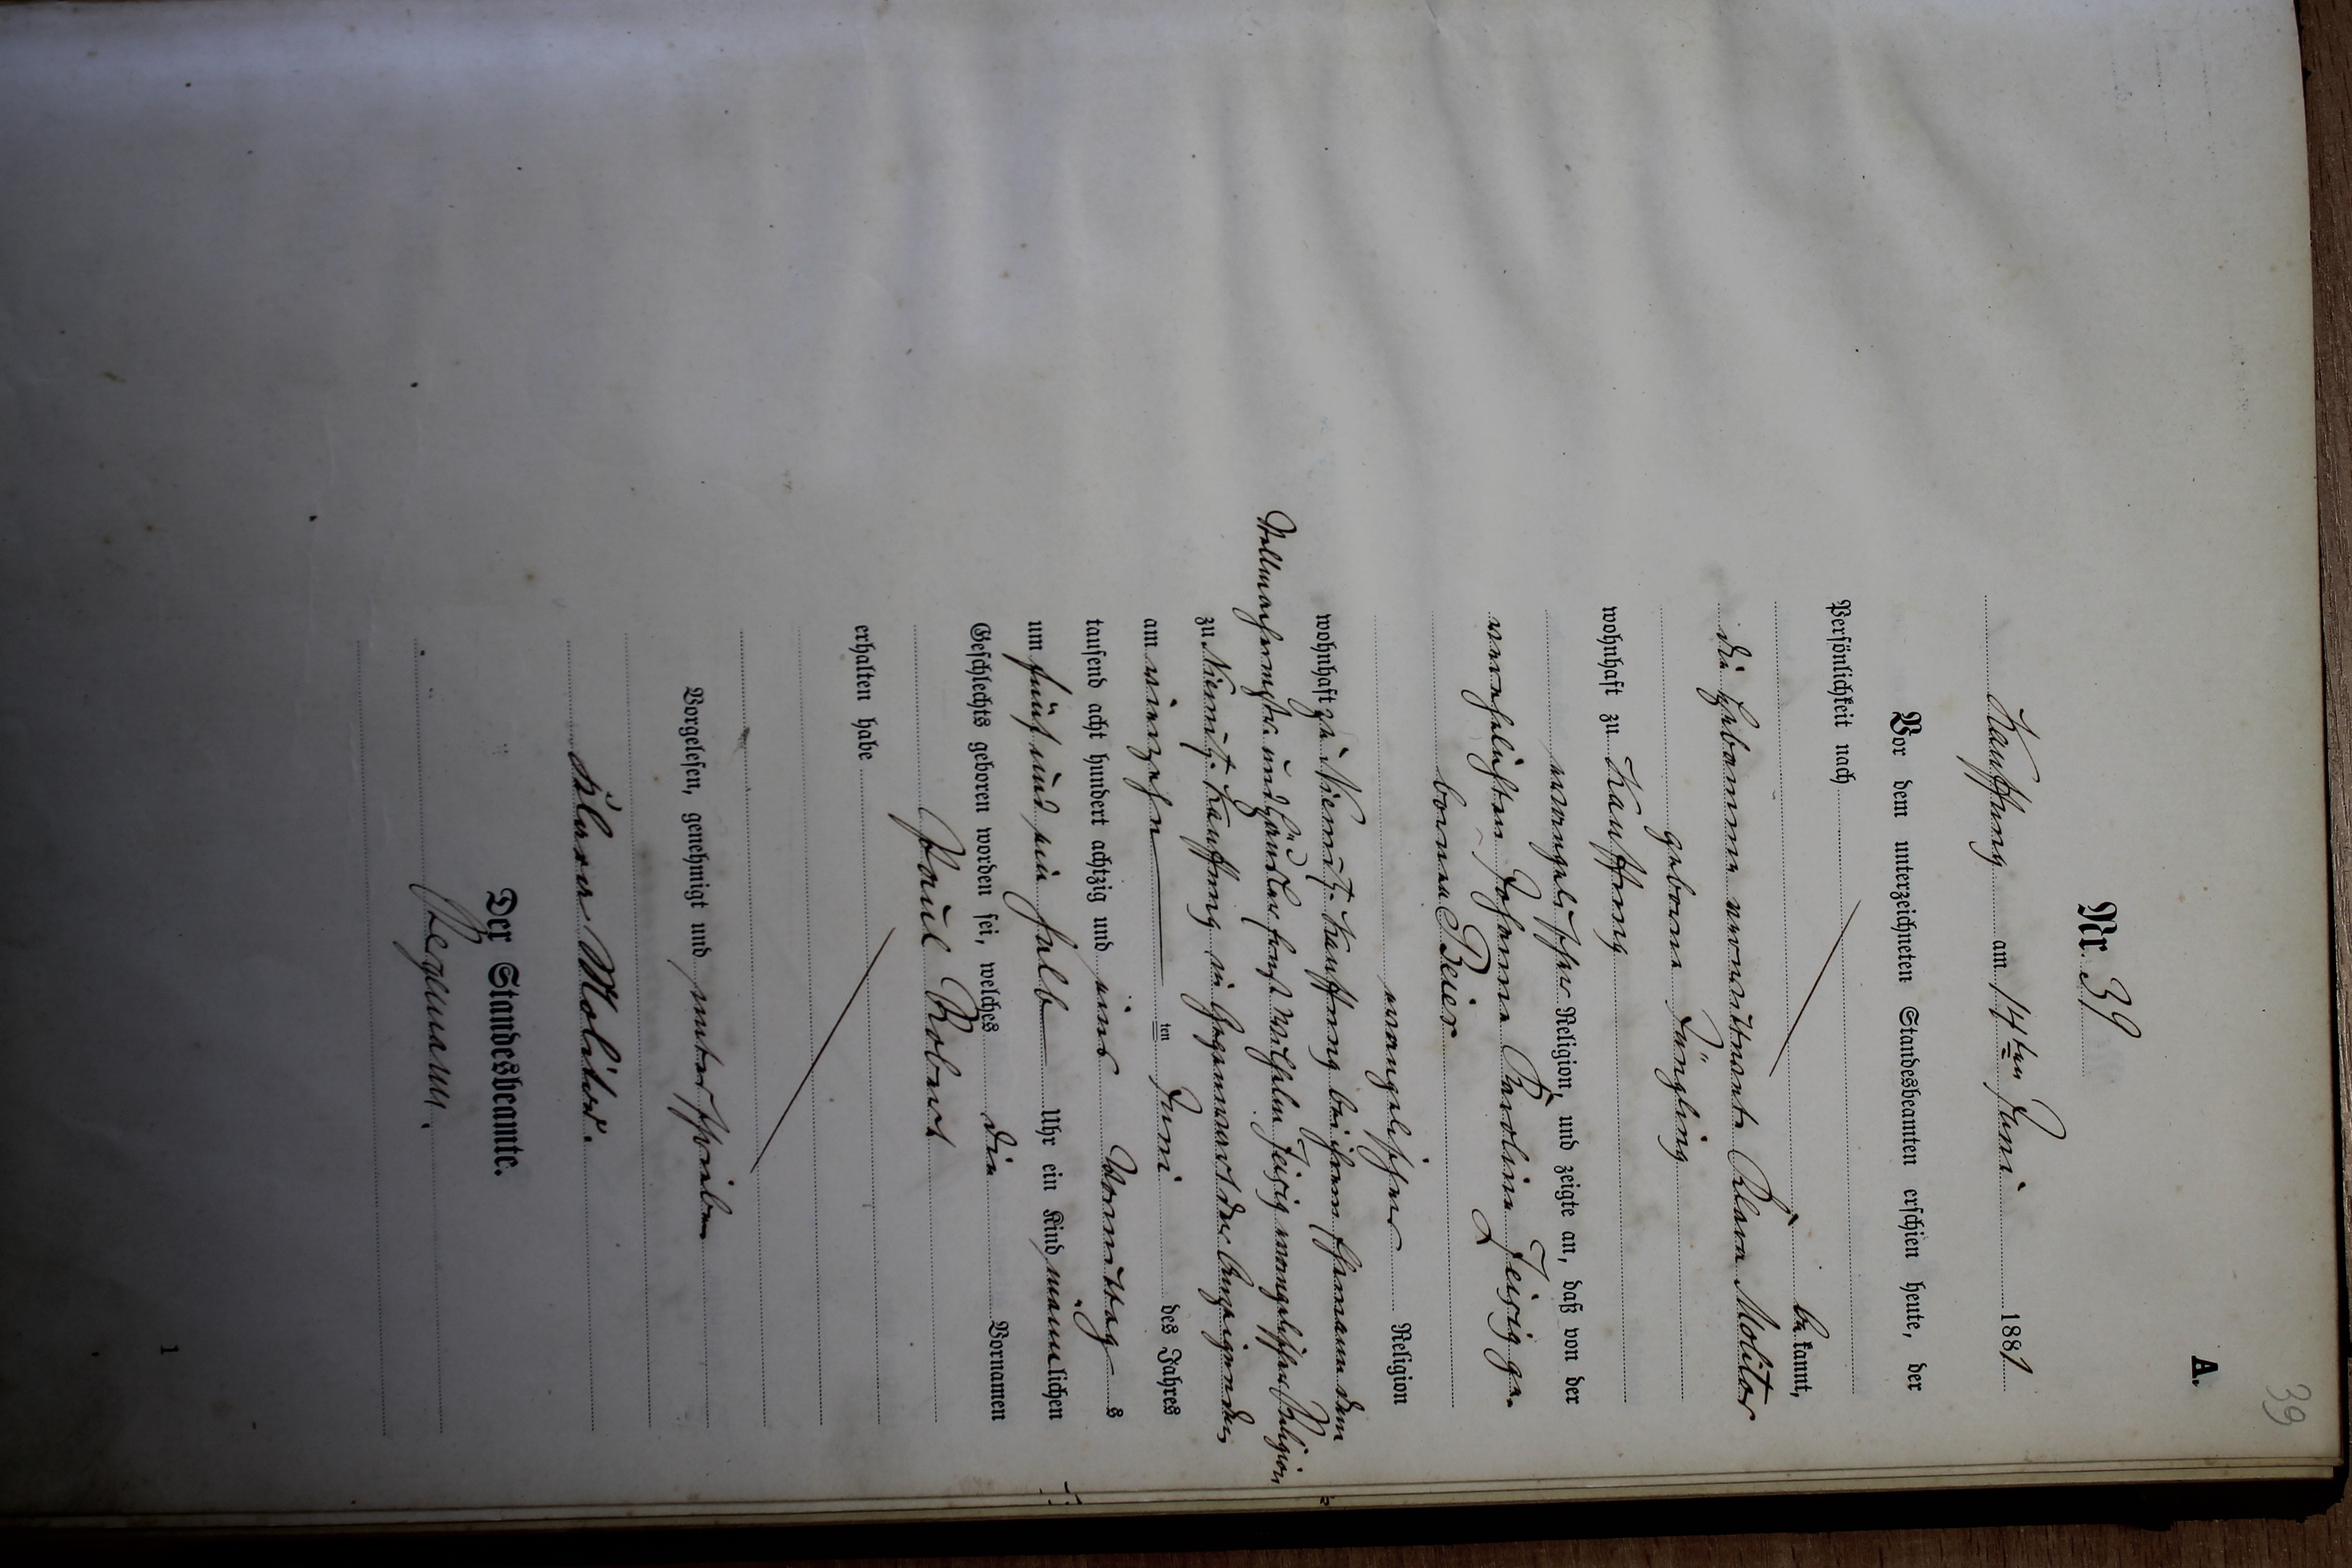 39
A.
Nr. 39
Kauffung am 14ten Juni 1881
Vor dem unterzeichneten Standesbeamten erschien heute, der
Persönlichkeit nach
bekannt,
die Hebamme verwittwete Clara Molitor
geborene Jüngling
wohnhaft zu Kauffung
evangelischer Religion, und zeigte an, daß von der
verehelichten Johanne Karoline Zeisig ge-
borene Beier
evangelischer Religion
wohnhaft zu Niemitz-Kauffung bei ihrem Ehemann dem
Stellmachermstr. und Häusler Ernst Wilhelm Zeisig evangelischer Religion
zu Niemitz-Kauffung in Gegenwart der Anzeigenden
am vierzehn ten Juni des Jahres
tausend acht hundert achtzig und eins Vormittag s
um fünf und ein halb Uhr ein Kind männlichen
Geschlechts geboren worden sei, welches die Vornamen
Paul Robert
erhalten habe
Vorgelesen, genehmigt und unterschrieben
Klara Molitor.
Der Standesbeamte.
1